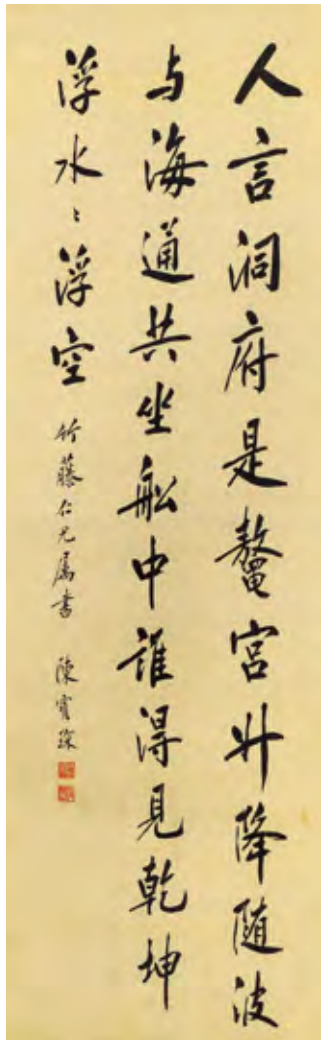 人言洞府是鼇宮升降随波
与海通共坐船中誰得見乾坤
浮水〻浮空
竹藤仁兄属書 陳寶琛